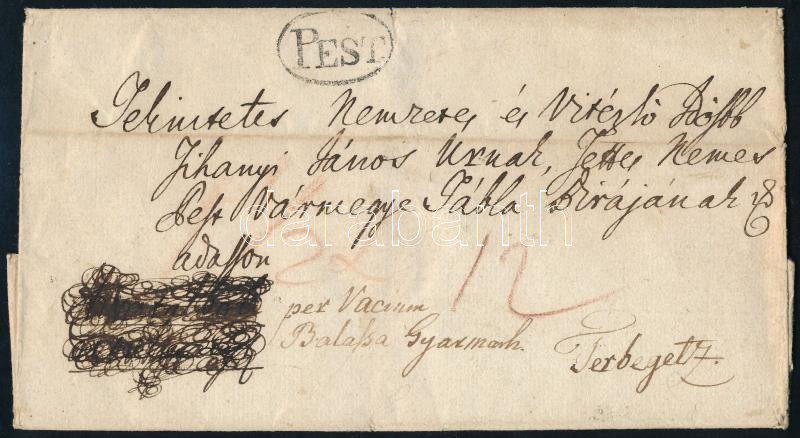 PEST
Tekintetes Nemzetes és Vitézlő
Tihanyi János Urnak, Tettes Nemes
Pest Vármegye Tábla Birájának
adasson
22 12
per Vacium
Balassa Gyarmath.
Terbegetz.
darabanth